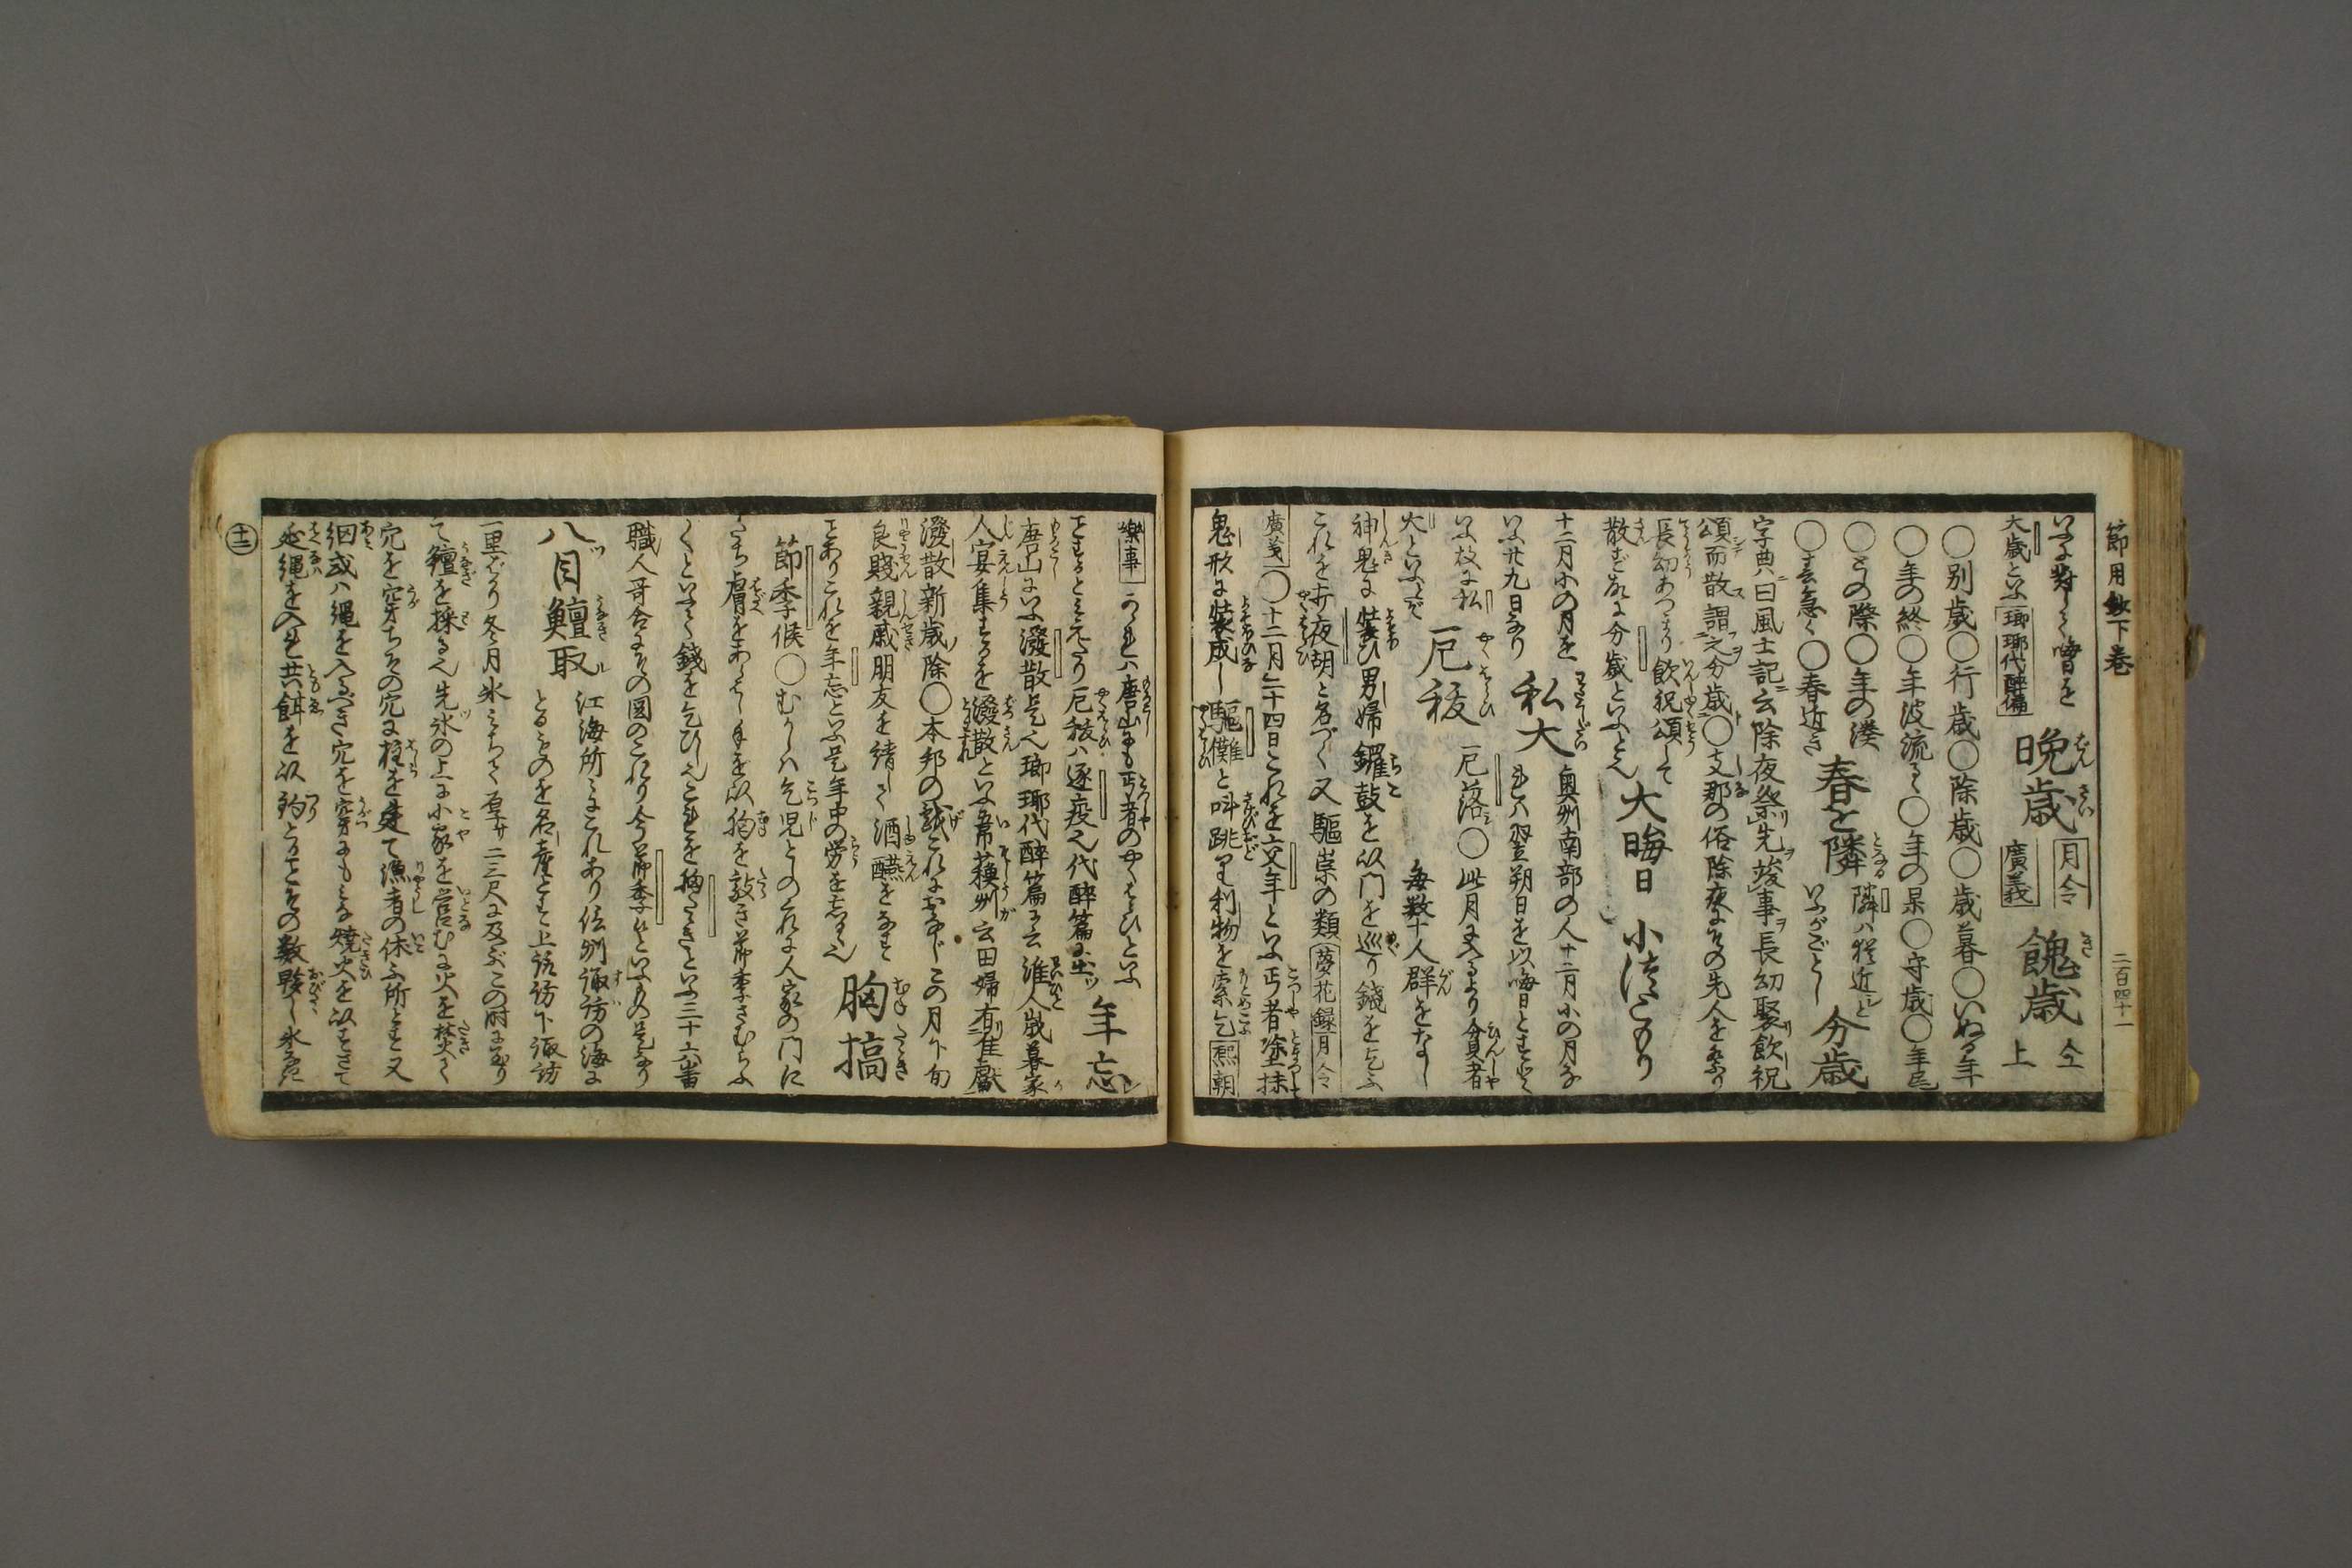 節用鈔下巻
二百四十一
いふに對して嘈を 晩歳 月令廣義 餽歳 仝上
大歳といふ 瑯琊代醉編
○別歳○行歳○除歳○歳暮○いぬる年
○年の終○年波流るゝ○年の杲○守歳○年尾
○年の際○年の湊 春を隣 隣ハ程近しと
○春急く○春近き いふがごとし 分歳
字典ニ曰風土記ニ云除夜祭先竣事長幼聚飲祝
頌而散謂之分歳○支那の俗除夜にその先人を祭り
長幼あつまり飲祝頌して
散ず故に分歳といふとぞ 大晦日 小つごもり
十二月小の月を
いふ廿九日なり 私大 奥州南部の人十二月小の月なれハ翌朔日を以晦日とす
いふ故に私 厄祓 厄落○此月に入るより貧者
大といふとぞ 毎数十人群をなし
神鬼に装ひ男婦鑼鼓を以門を巡り錢を乞ふ
これを打夜胡と名づく又驅祟の類 夢花録 月令
廣義 ○十二月二十四日これを交年といふ丐者塗抹
鬼形に装成し驅儺と叫跳て利物を索乞 熙朝
樂事 これハ唐山にも丐者のやくはらひといふ
ことみえたり厄祓ハ逐疫也代醉篇に出ツ 年忘
唐山にいふ潑散是也瑯琊代醉篇ニ云淮人歳暮家
人宴集するを潑散といふ韋蘇州云田婦有佳獻
潑散新歳除○本邦の誠これにおなじこの月下旬
良賤親戚朋友を請て酒醼をなす
ことありこれを年忘といふ是年中の労を忘るゝ也 胸搞
節季候○むかしハ乞児としの暮に人家の門に
たち膚をあらハし手を以胸を敲き節季さむらふ
くといふて錢を乞ひしなりこれを胸たゝきといふ三十六番
職人哥合にその図のこれり今節季候といふもの是なり
八目鱣取 江海所々にこれあり信州諏訪の海に
とるものを名産とす上諏訪下諏訪
一里ばかり冬月氷みちて厚サ二三尺に及ぶこの时に至り
て鱣を採る也先氷の上に小家を営むに火を焚て
穴を穿ちその穴に柱を建て漁者の休ふ所とす又
網或ハ縄を入るべき穴を穿にもみな焼火を以てす
延縄を入れ共餌を以釣とることその数
十二